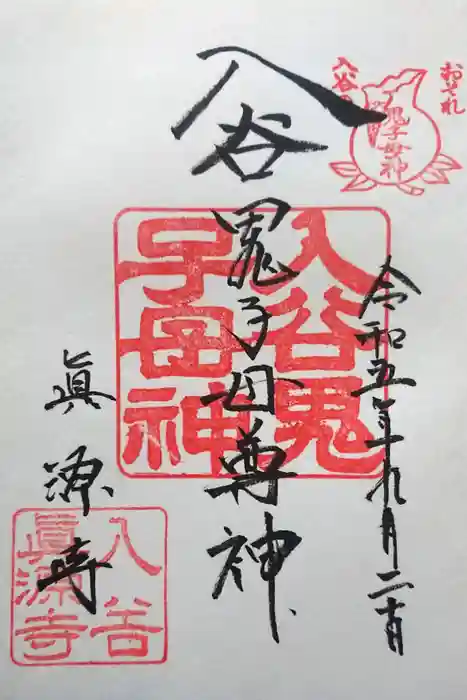 おそれ
入谷の
鬼子母神
令和五年九月二十日
入谷
鬼子母尊神
入谷鬼
子母神
眞源寺
入谷
眞源寺